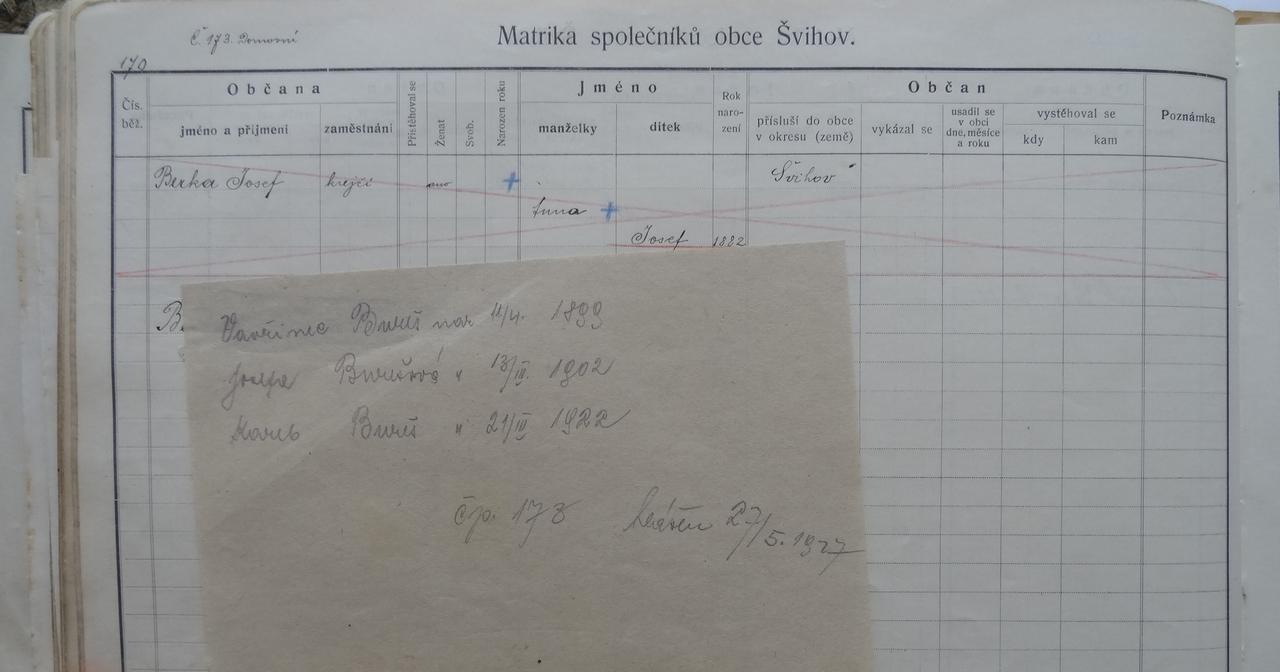 Č 173. Domovní
Matrika společníků obce Švihov.
170
Čís. běž.
Občana
jméno a přijmení
zaměstnání
Přistěhoval se
Ženat
Svob.
Narozen roku
Jméno
manželky
dítek
Rok naro-zení
Občan
přísluší do obce v okresu (země)
vykázal se
usadil se v obci dne, měsíce a roku
vystěhoval se
kdy
kam
Poznámka
Berka Josef krejčí ano + Švihov
Anna +
Josef 1882
B
Vavřinec Bureš nar 11/4. 1899
Josefa Burešová " 13/III. 1902
Karel Bureš " 21/IV 1922
čp. 173 hlášen 27/5. 1927